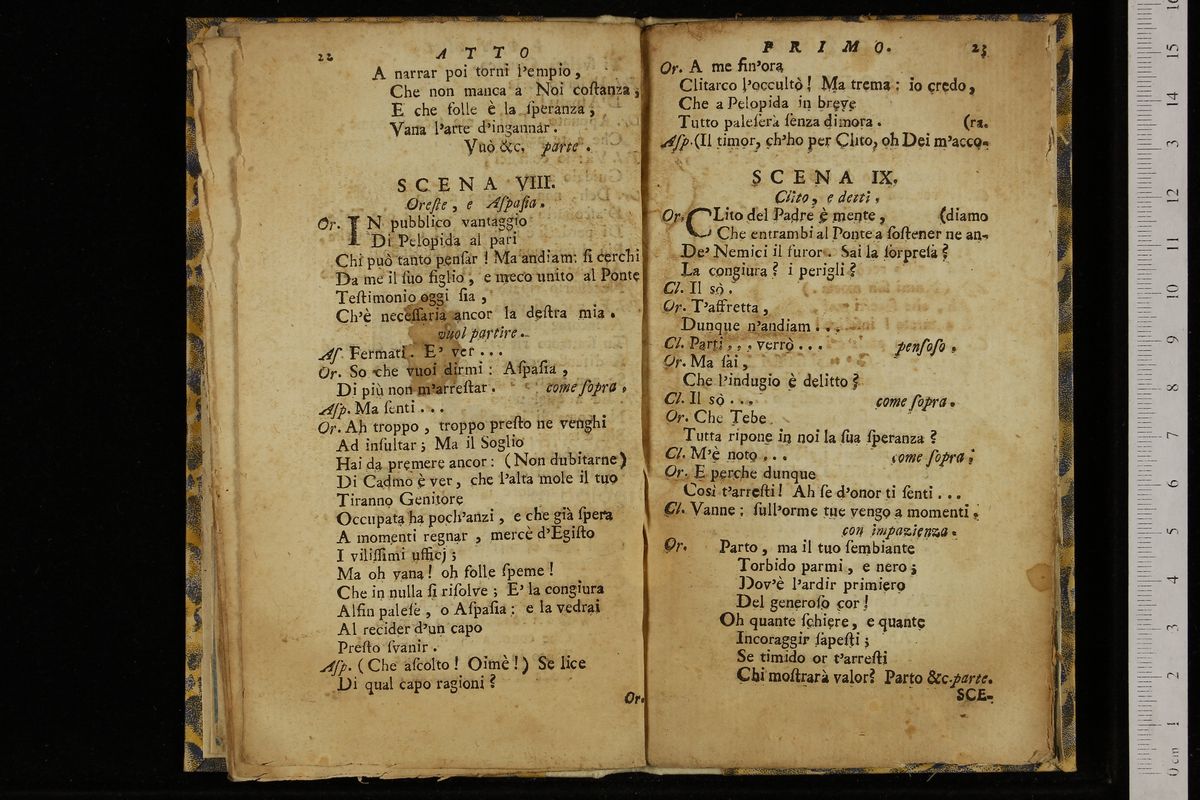 22 ATTO
A narrar poi torni l'empio,
Che non manca a Noi coſtanza;
E che folle è la ſperanza,
Vana l'arte d'ingannar.
Vuò &c. parte.
SCENA VIII.
Oreſte, e Aſpaſia.
Or. IN pubblico vantaggio
Di Pelopida al pari
Chi può tanto penſar! Ma andiam: ſi cerchi
Da me il ſuo figlio, e meco unito al Ponte
Teſtimonio oggi ſia,
Ch'è neceſſaria ancor la deſtra mia.
vuol partire.
Aſ. Fermati. E' ver...
Or. So che vuoi dirmi: Aſpaſia,
Di più non m'arreſtar. come ſopra.
Aſp. Ma ſenti...
Or. Ah troppo, troppo preſto ne venghi
Ad inſultar; Ma il Soglio
Hai da premere ancor: (Non dubitarne)
Di Cadmo è ver, che l'alta mole il tuo
Tiranno Genitore
Occupata ha poch'anzi, e che già ſpera
A momenti regnar, mercè d'Egiſto
I viliſſimi ufficj;
Ma oh vana! oh folle ſpeme!
Che in nulla ſi riſolve; E' la congiura
Alfin paleſe, o Aſpaſia: e la vedrai
Al recider d'un capo
Preſto ſvanir.
Aſp. (Che aſcolto! Oimè!) Se lice
Di qual capo ragioni?
Or.
PRIMO. 23
Or. A me fin'ora
Clitarco l'occultò! Ma trema: io credo,
Che a Pelopida in breve
Tutto paleſerà ſenza dimora. (ra.
Aſp. (Il timor, ch'ho per Clito, oh Dei m'acco-
SCENA IX.
Clito, e detti.
Or. CLito del Padre è mente, (diamo
Che entrambi al Ponte a ſoſtener ne an-
De' Nemici il furor. Sai la ſorpreſa?
La congiura? i perigli?
Cl. Il sò.
Or. T'affretta,
Dunque n'andiam...
Cl. Parti... verrò... penſoſo.
Or. Ma ſai,
Che l'indugio è delitto?
Cl. Il sò... come ſopra.
Or. Che Tebe
Tutta ripone in noi la ſua ſperanza?
Cl. M'è noto... come ſopra;
Or. E perche dunque
Così t'arreſti! Ah ſe d'onor ti ſenti...
Cl. Vanne; ſull'orme tue vengo a momenti.
con impazienza.
Or. Parto, ma il tuo ſembiante
Torbido parmi, e nero;
Dov'è l'ardir primiero
Del generoſo cor!
Oh quante ſchiere, e quante
Incoraggir ſapeſti;
Se timido or t'arreſti
Chi moſtrarà valor? Parto &c. parte.
SCE-